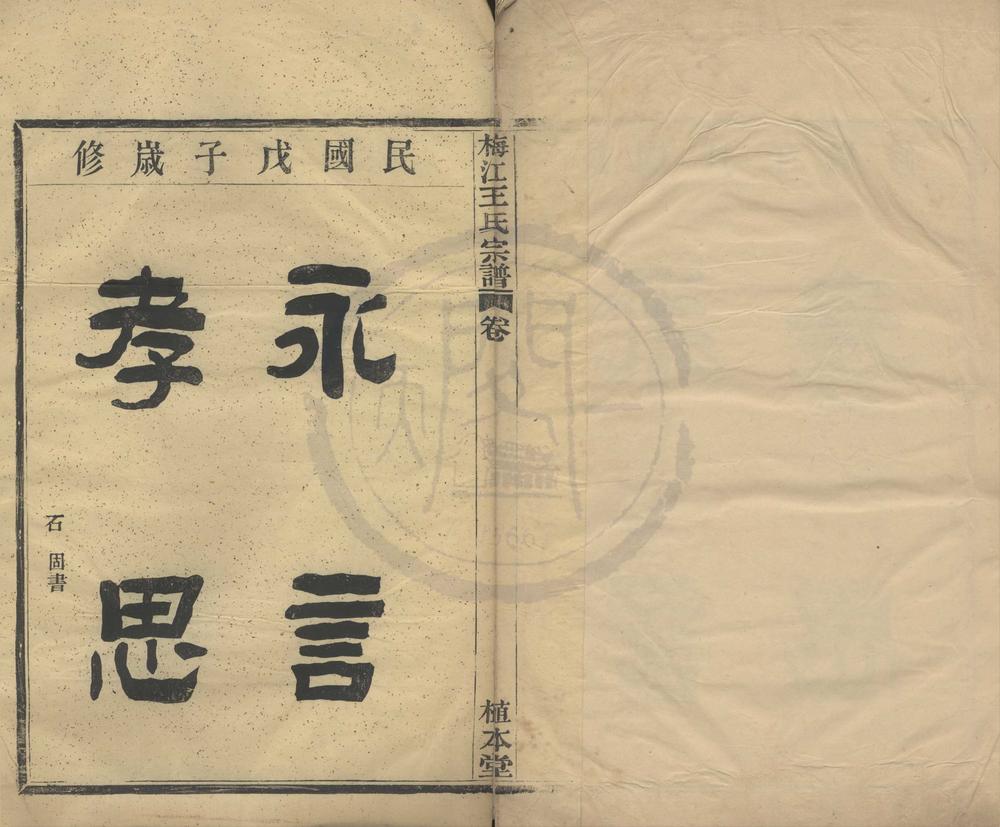 民國戊子歲修
永言
孝思
石固書
梅江王氏宗譜
卷
植本堂